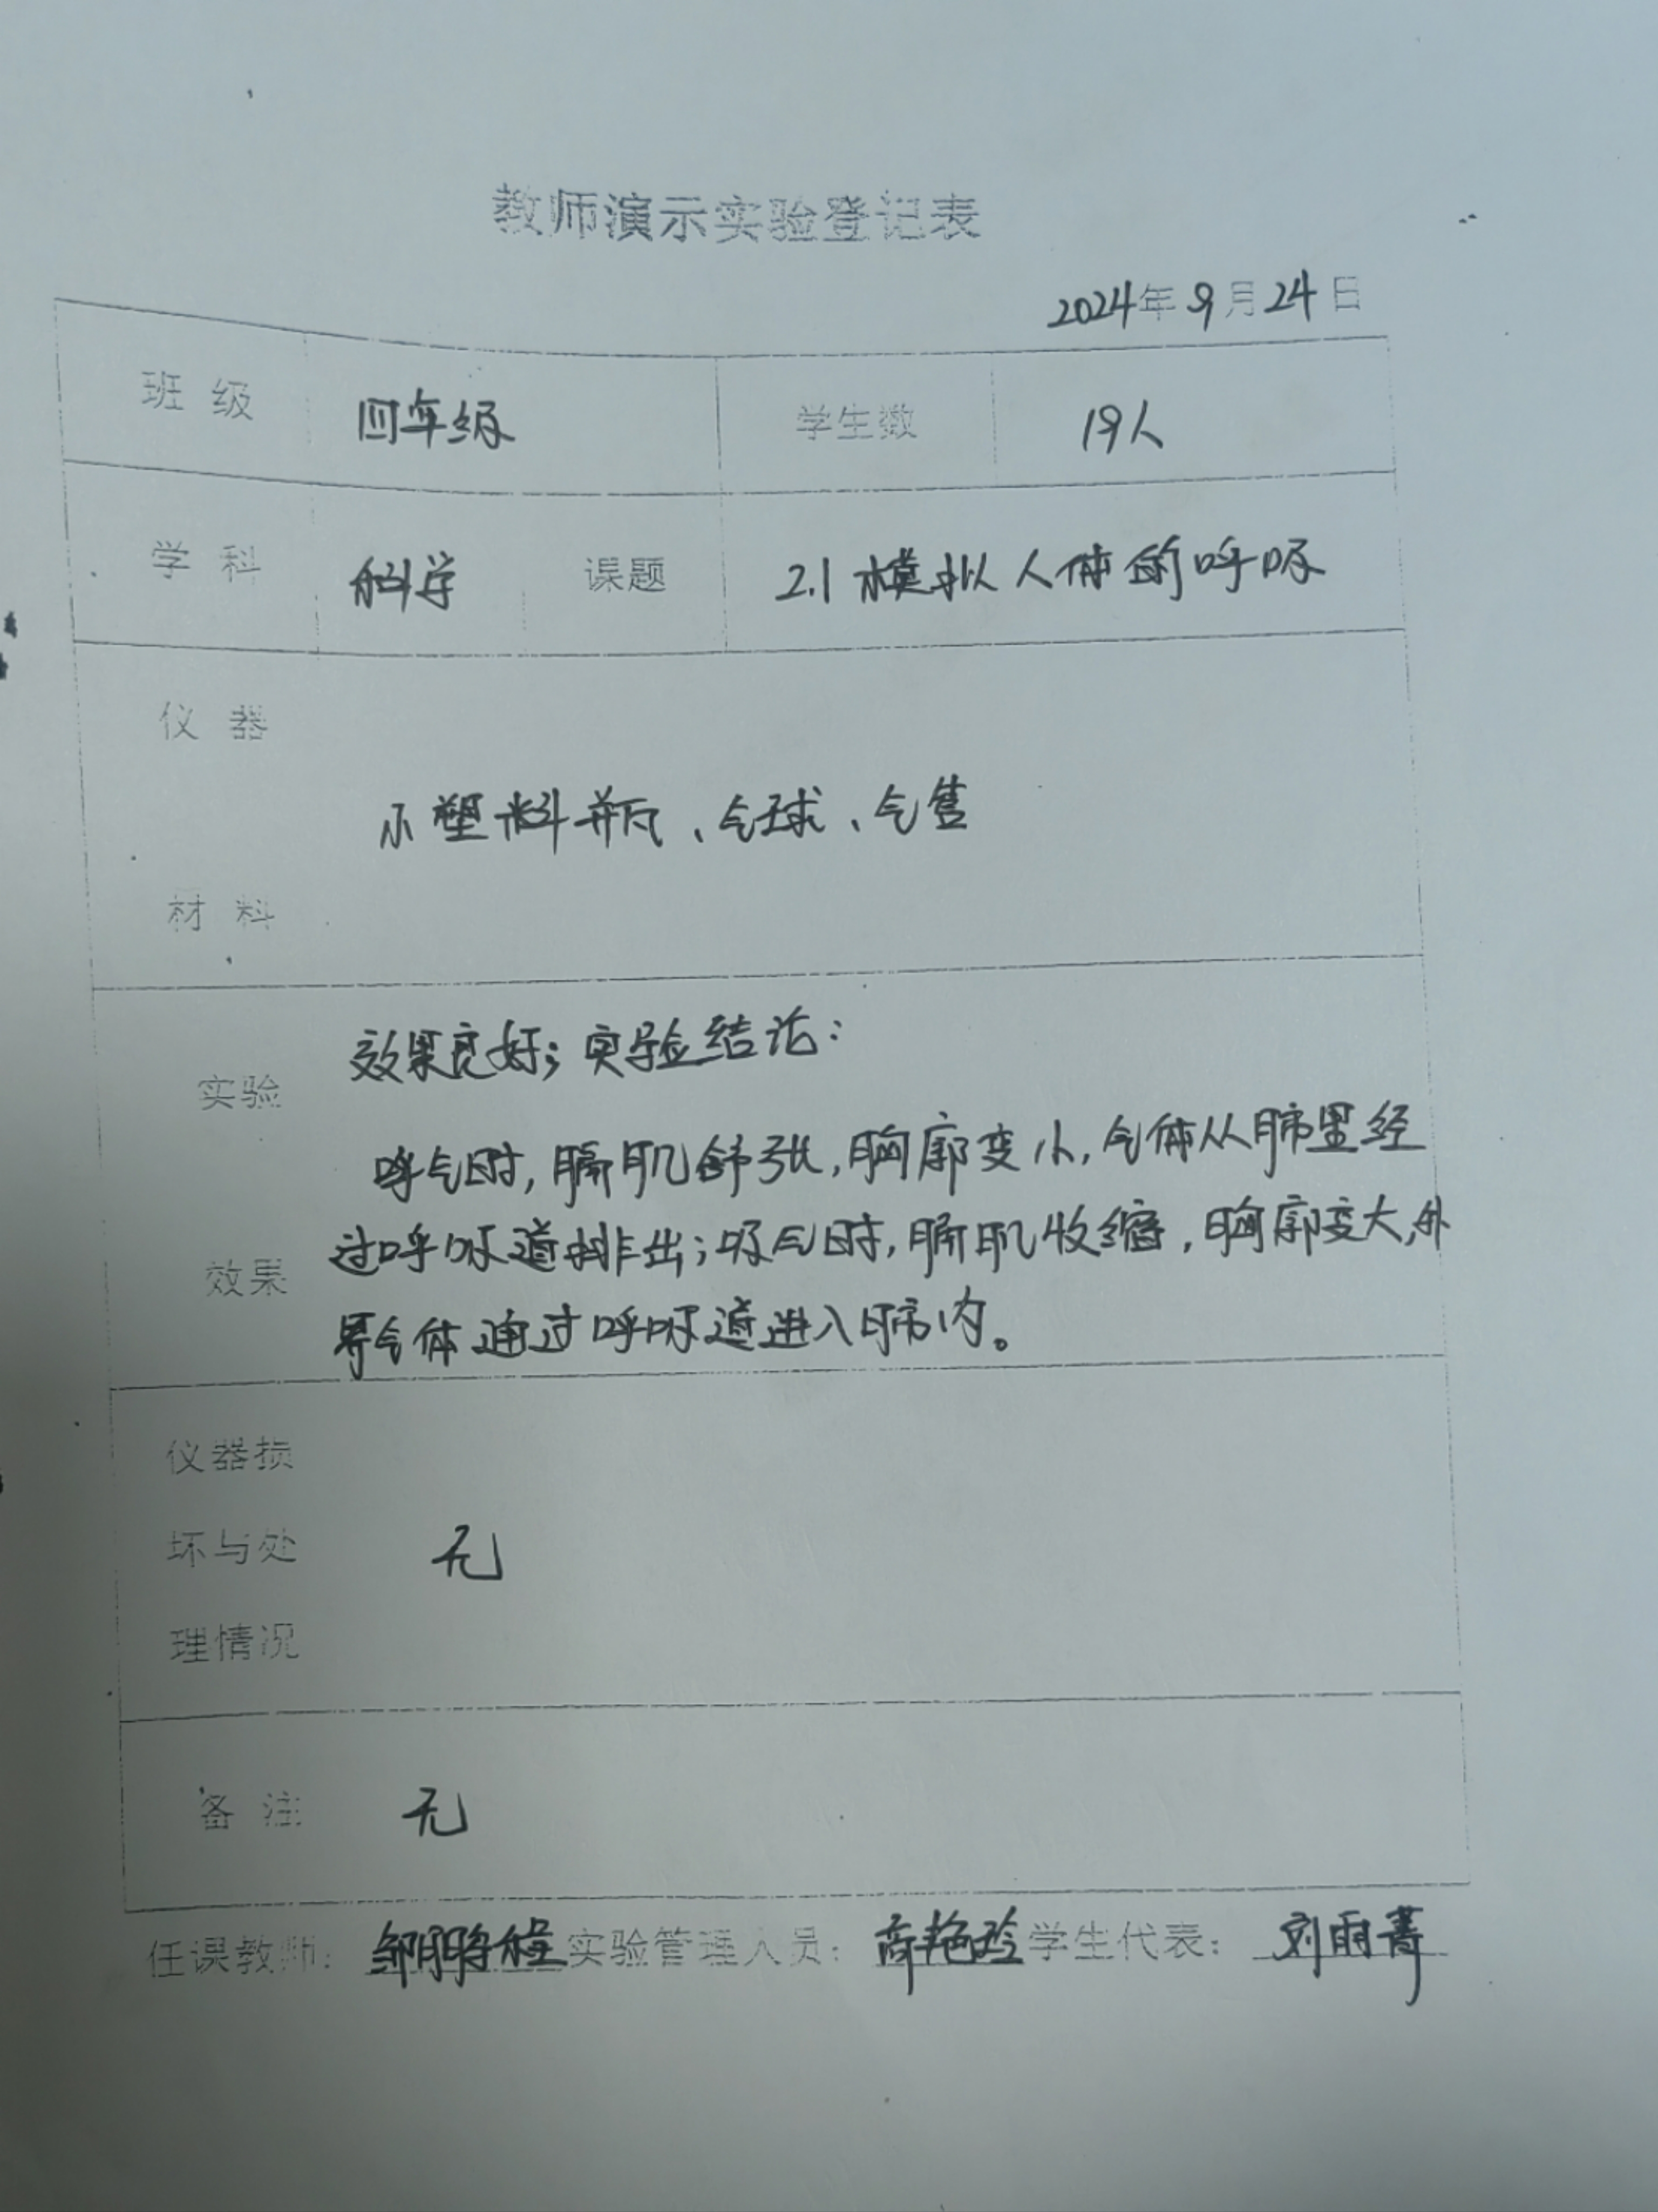 教师演示实验登记表
2024年9月24日
班 级 四年级 学生数 19人
学 科 科学 课题 2.1 模拟人体的呼吸
仪 器
小塑料瓶、气球、气
材 料
效果良好；实验结论：
实验
呼气时，膈肌舒张，胸廓变小，气体从肺里经
过呼吸道排出；吸气时，膈肌收缩，胸廓变大，外
效果
界气体通过呼吸道进入肺内。
仪器损
坏与处 无
理情况
备 注 无
任课教师： 邹 实验管理人员： 艳玲 学生代表： 刘雨菁